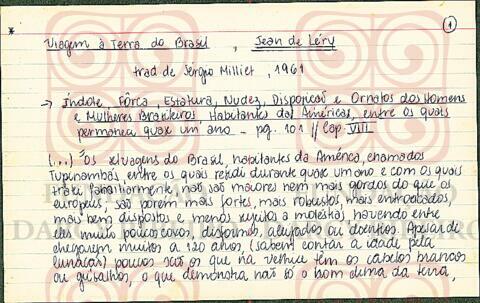 ①
* Viagem à Terra do Brasil, Jean de Léry
trad de Sérgio Milliet, 1961
→ Índole, Fôrça, Estatura, Nudez, Disposição e Ornatos dos Homens
e Mulheres Brasileiros, Habitantes da América, entre os quais
permaneci quase um ano - pg. 101 // Cap. VIII
(...) "Os selvagens do Brasil, habitantes da América, chamados
Tupinambás, entre os quais residi durante quase um ano e com os quais
tratei familiarmente, não são maiores nem mais gordos do que os
europeus; são porém mais fortes, mais robustos, mais entroncados,
mais bem dispostos e menos sujeitos a moléstias, havendo entre
eles muito poucos coxos, disformes, aleijados ou doentios. Apesar de
chegarem muitos a 120 anos, (sabem contar a idade pela
lunação) poucos são os que na velhice têm os cabelos brancos
ou grisalhos, o que demonstra não só o bom clima da terra,